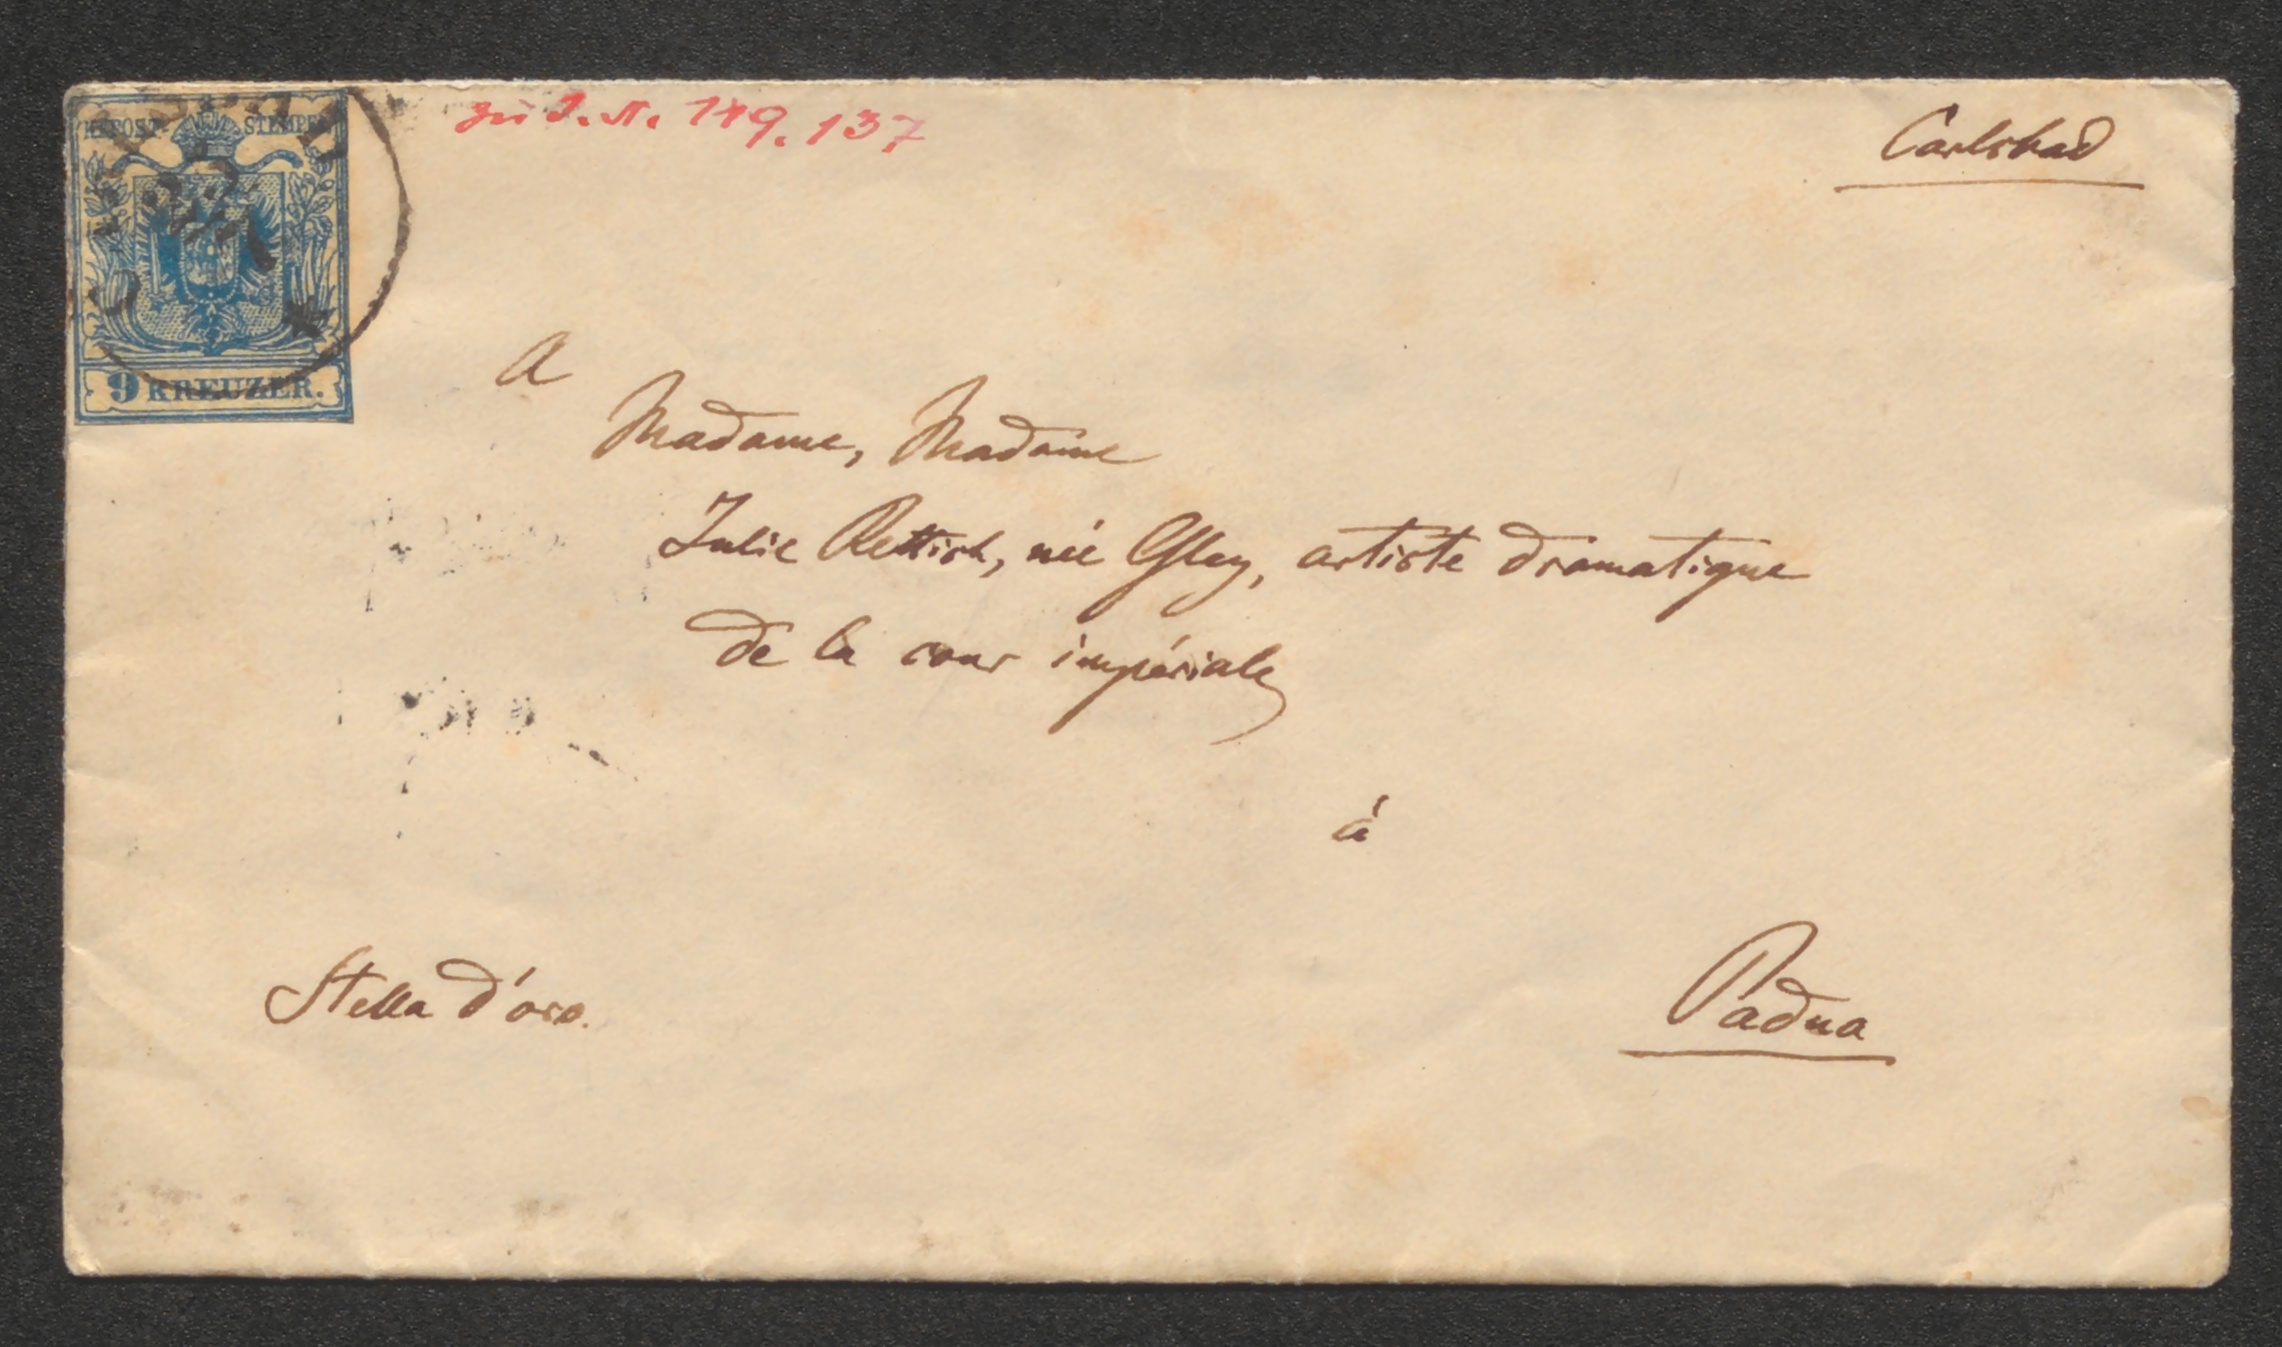 zu I. N. 149.137
Carlsbad
KK POST STEMPEL
9 KREUZER.
A
Madame, Madame
Julie Rettich, née Gley, artiste dramatique
de la cour impériale
à
Stella d'oro.
Padua